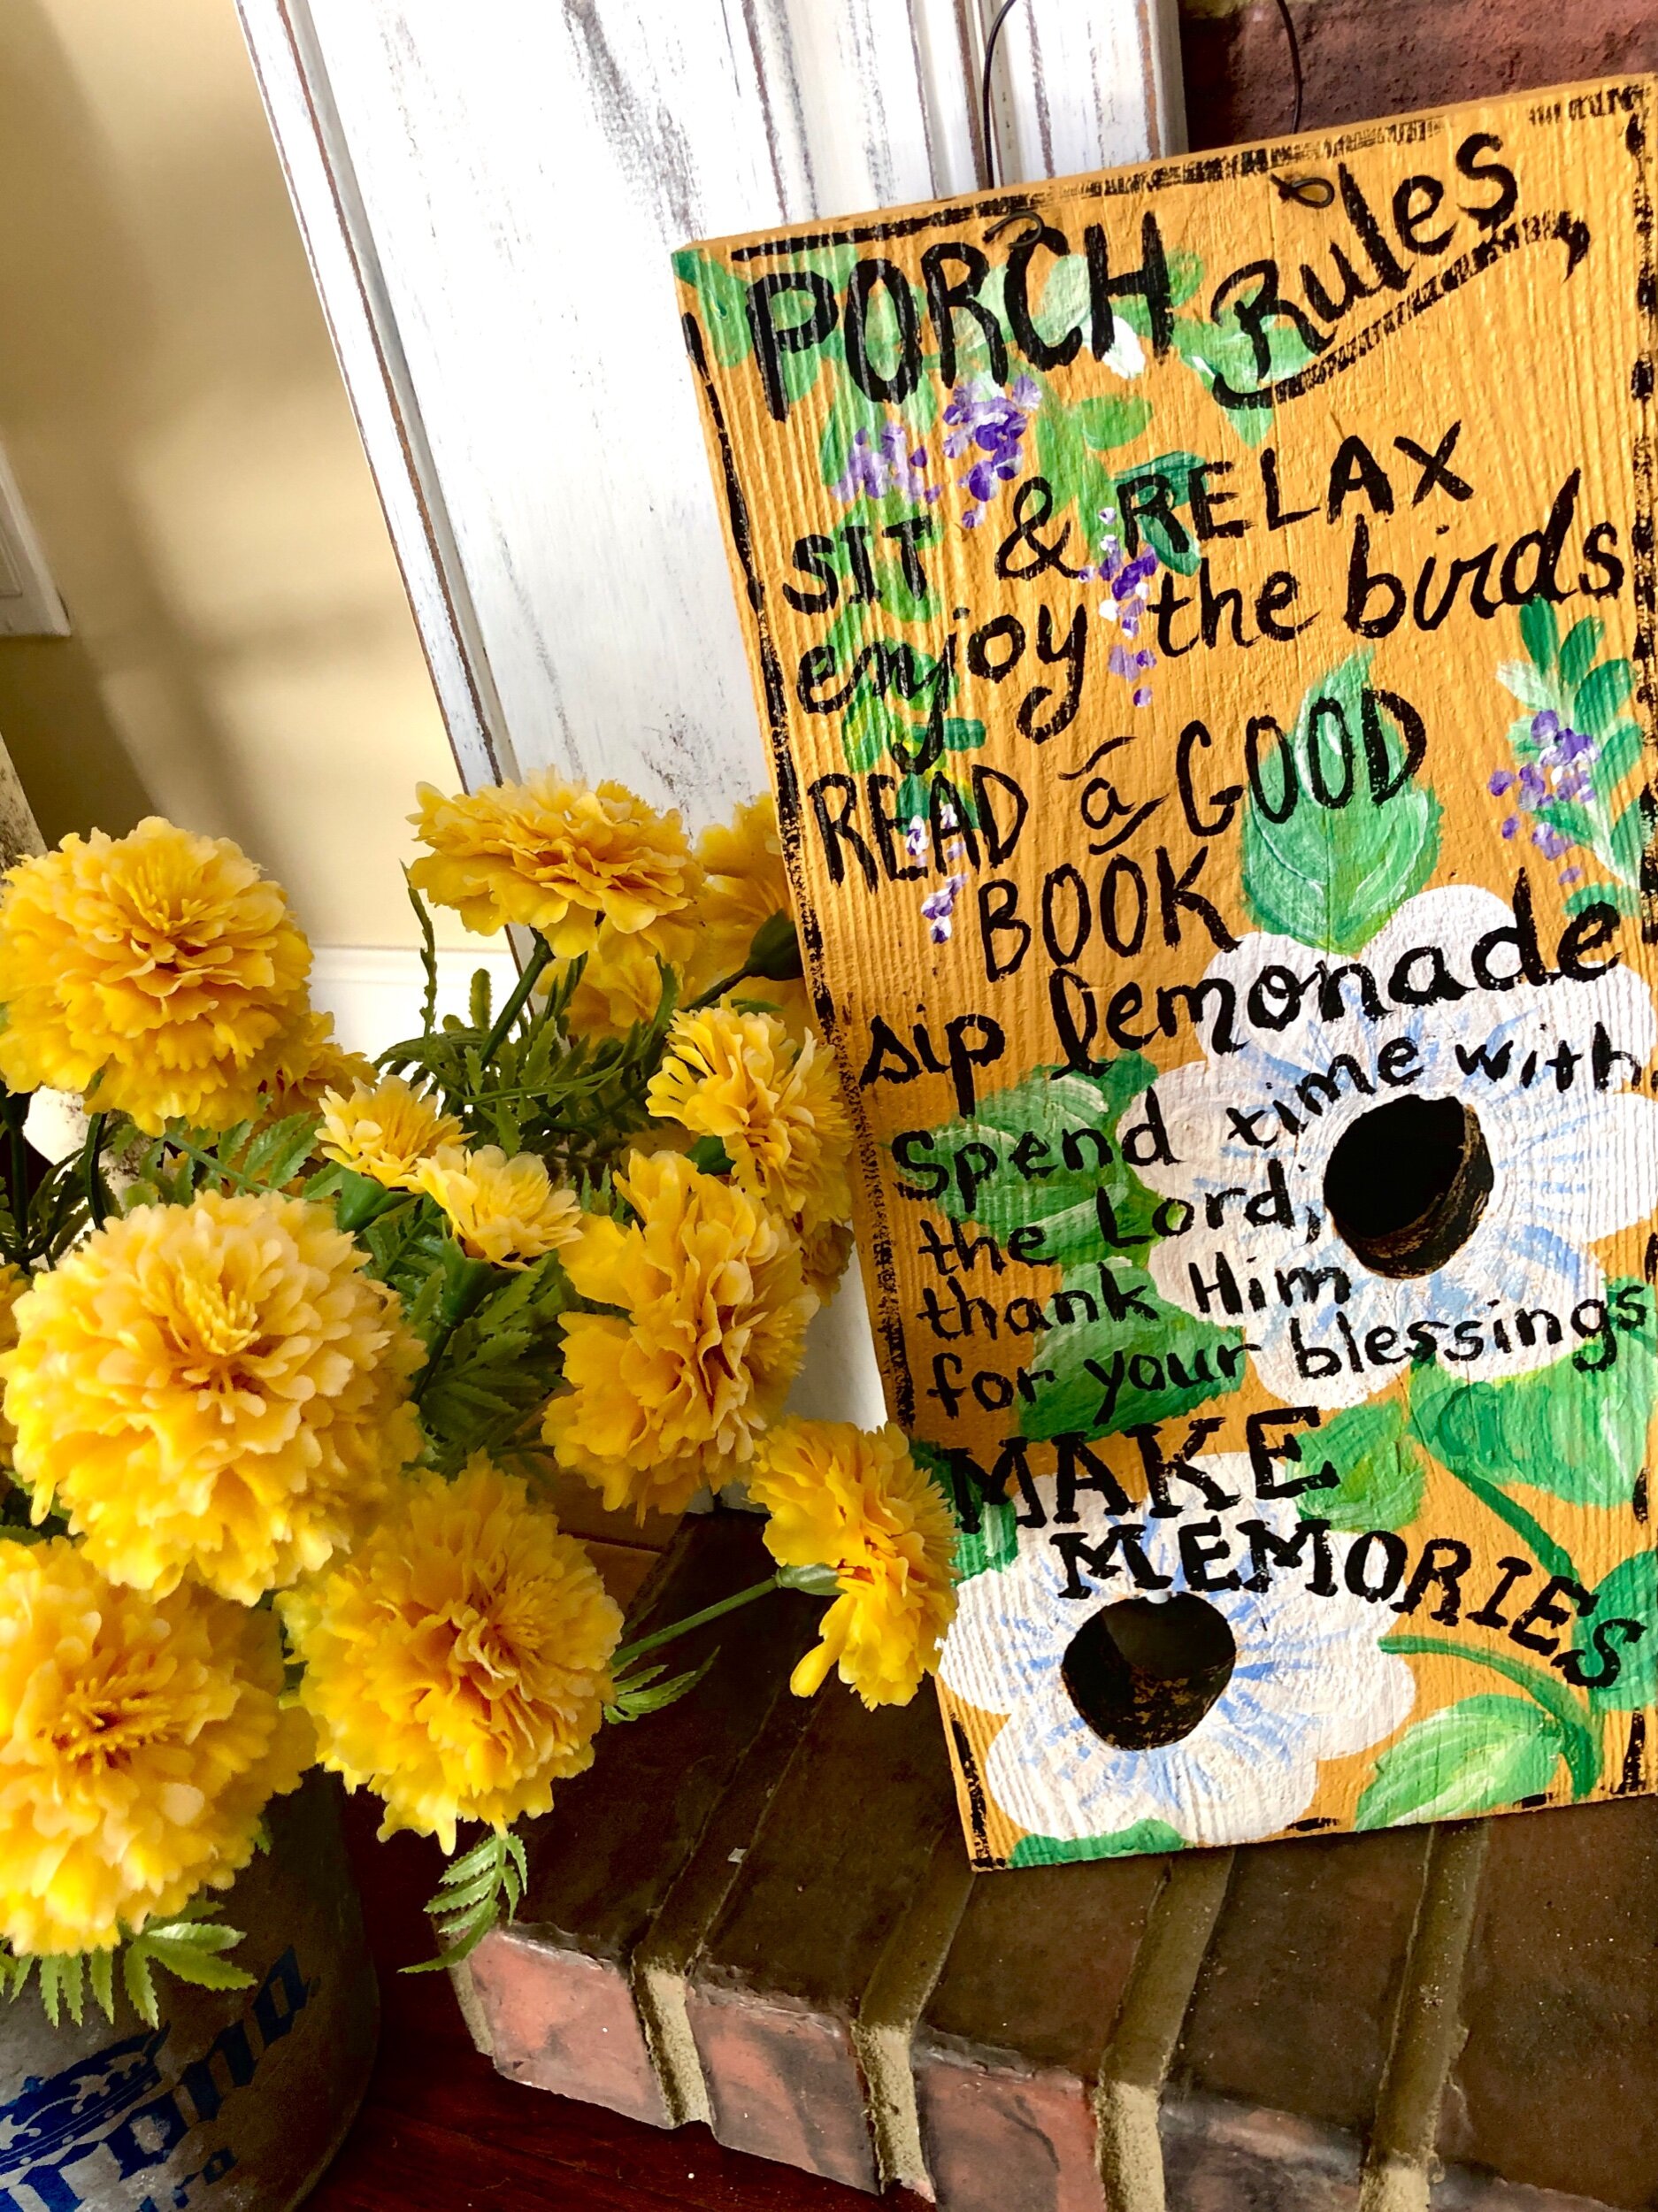 PORCH Rules,
SIT & RELAX
enjoy the birds
READ a GOOD
BOOK
sip lemonade
Spend time with
the Lord;
thank Him
for your blessings
MAKE
MEMORIES